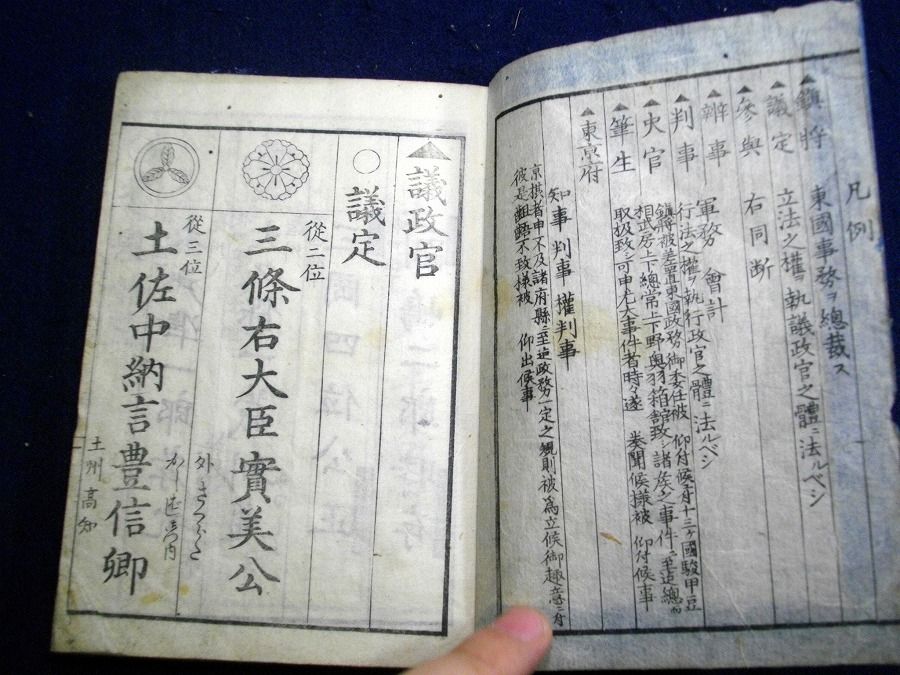 凡例
▲鎮将 東國事務ヲ總裁ス
▲議定 立法之權ヲ執議政官之體ニ法ルベシ
▲參與 右同断
▲辨事 軍務 會計
▲判事 行法之權ヲ執行政官之體ニ法ルベシ
▲史官 鎮将被差置東國政務御委任被 仰付候ニ付十三ケ國駿甲豆
相武房上下總常上下野奥羽箱舘致シ諸矦之事件ニ至迄總而
▲筆生 取扱致シ可申尤大事件者時々遂 奏聞候様被 仰付候事
▲東京府
知事 判事 權判事
京摂者申不及諸府縣ニ至迄政務一定之規則被為立候御趣意ニ付
彼是齟齬不致様被 仰出候事
▲議政官
○議定
從二位
三條右大臣實美公
外さくらだ
從三位
土佐中納言豊信卿
土州高知